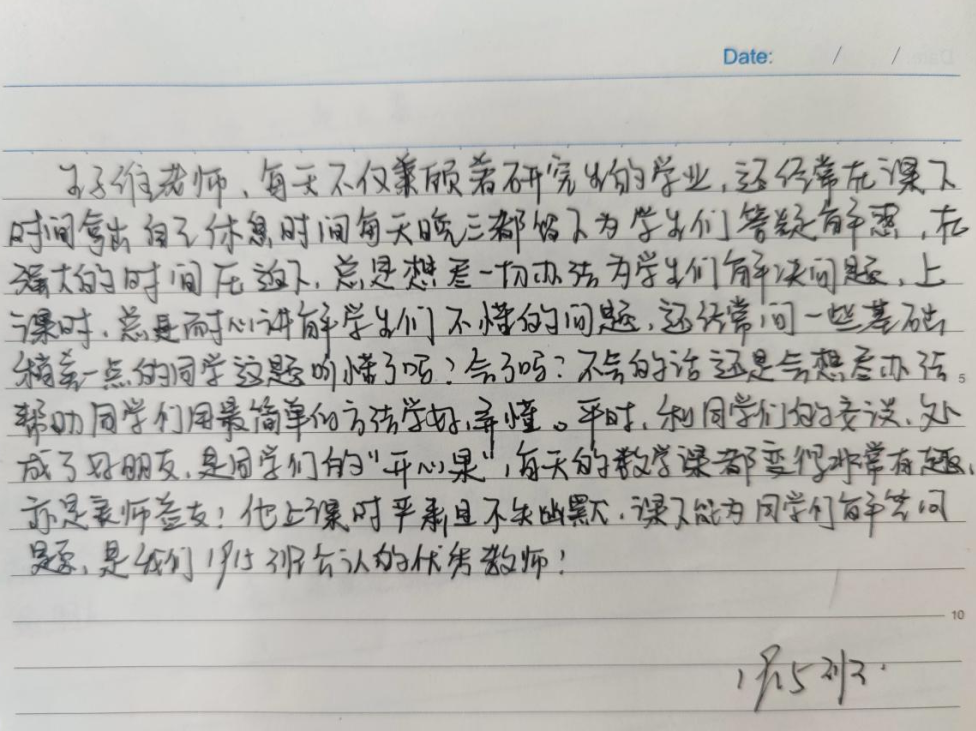 Date: / /
子维老师，每天不仅兼顾着研究生的学业，还经常在课下
时间拿出自己休息时间每天晚三都留下为学生们答疑解惑，在
强大的时间压迫下，总是想尽一切办法为学生们解决问题，上
课时，总是耐心讲解学生们不懂的问题，还经常问一些基础
稍差一点的同学这题听懂了吗？会了吗？不会的话还是会想尽办法
5
帮助同学们用最简单的方法学好，弄懂。平时，和同学们的交谈，处
成了好朋友，是同学们的“开心果”，每天的数学课都变得非常有趣，
亦是良师益友！他上课时严肃且不失幽默，课下能为同学们解答问
题，是我们1915班公认的优秀教师！
10
1915班.